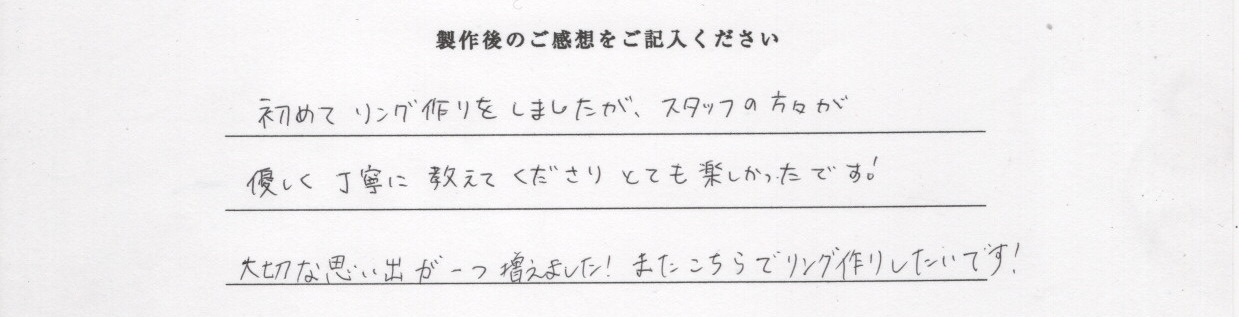 製作後のご感想をご記入ください
初めてリング作りをしましたが、スタッフの方々が
優しく丁寧に教えてくださりとても楽しかったです!
大切な思い出が一つ増えました!またこちらでリング作りしたいです!